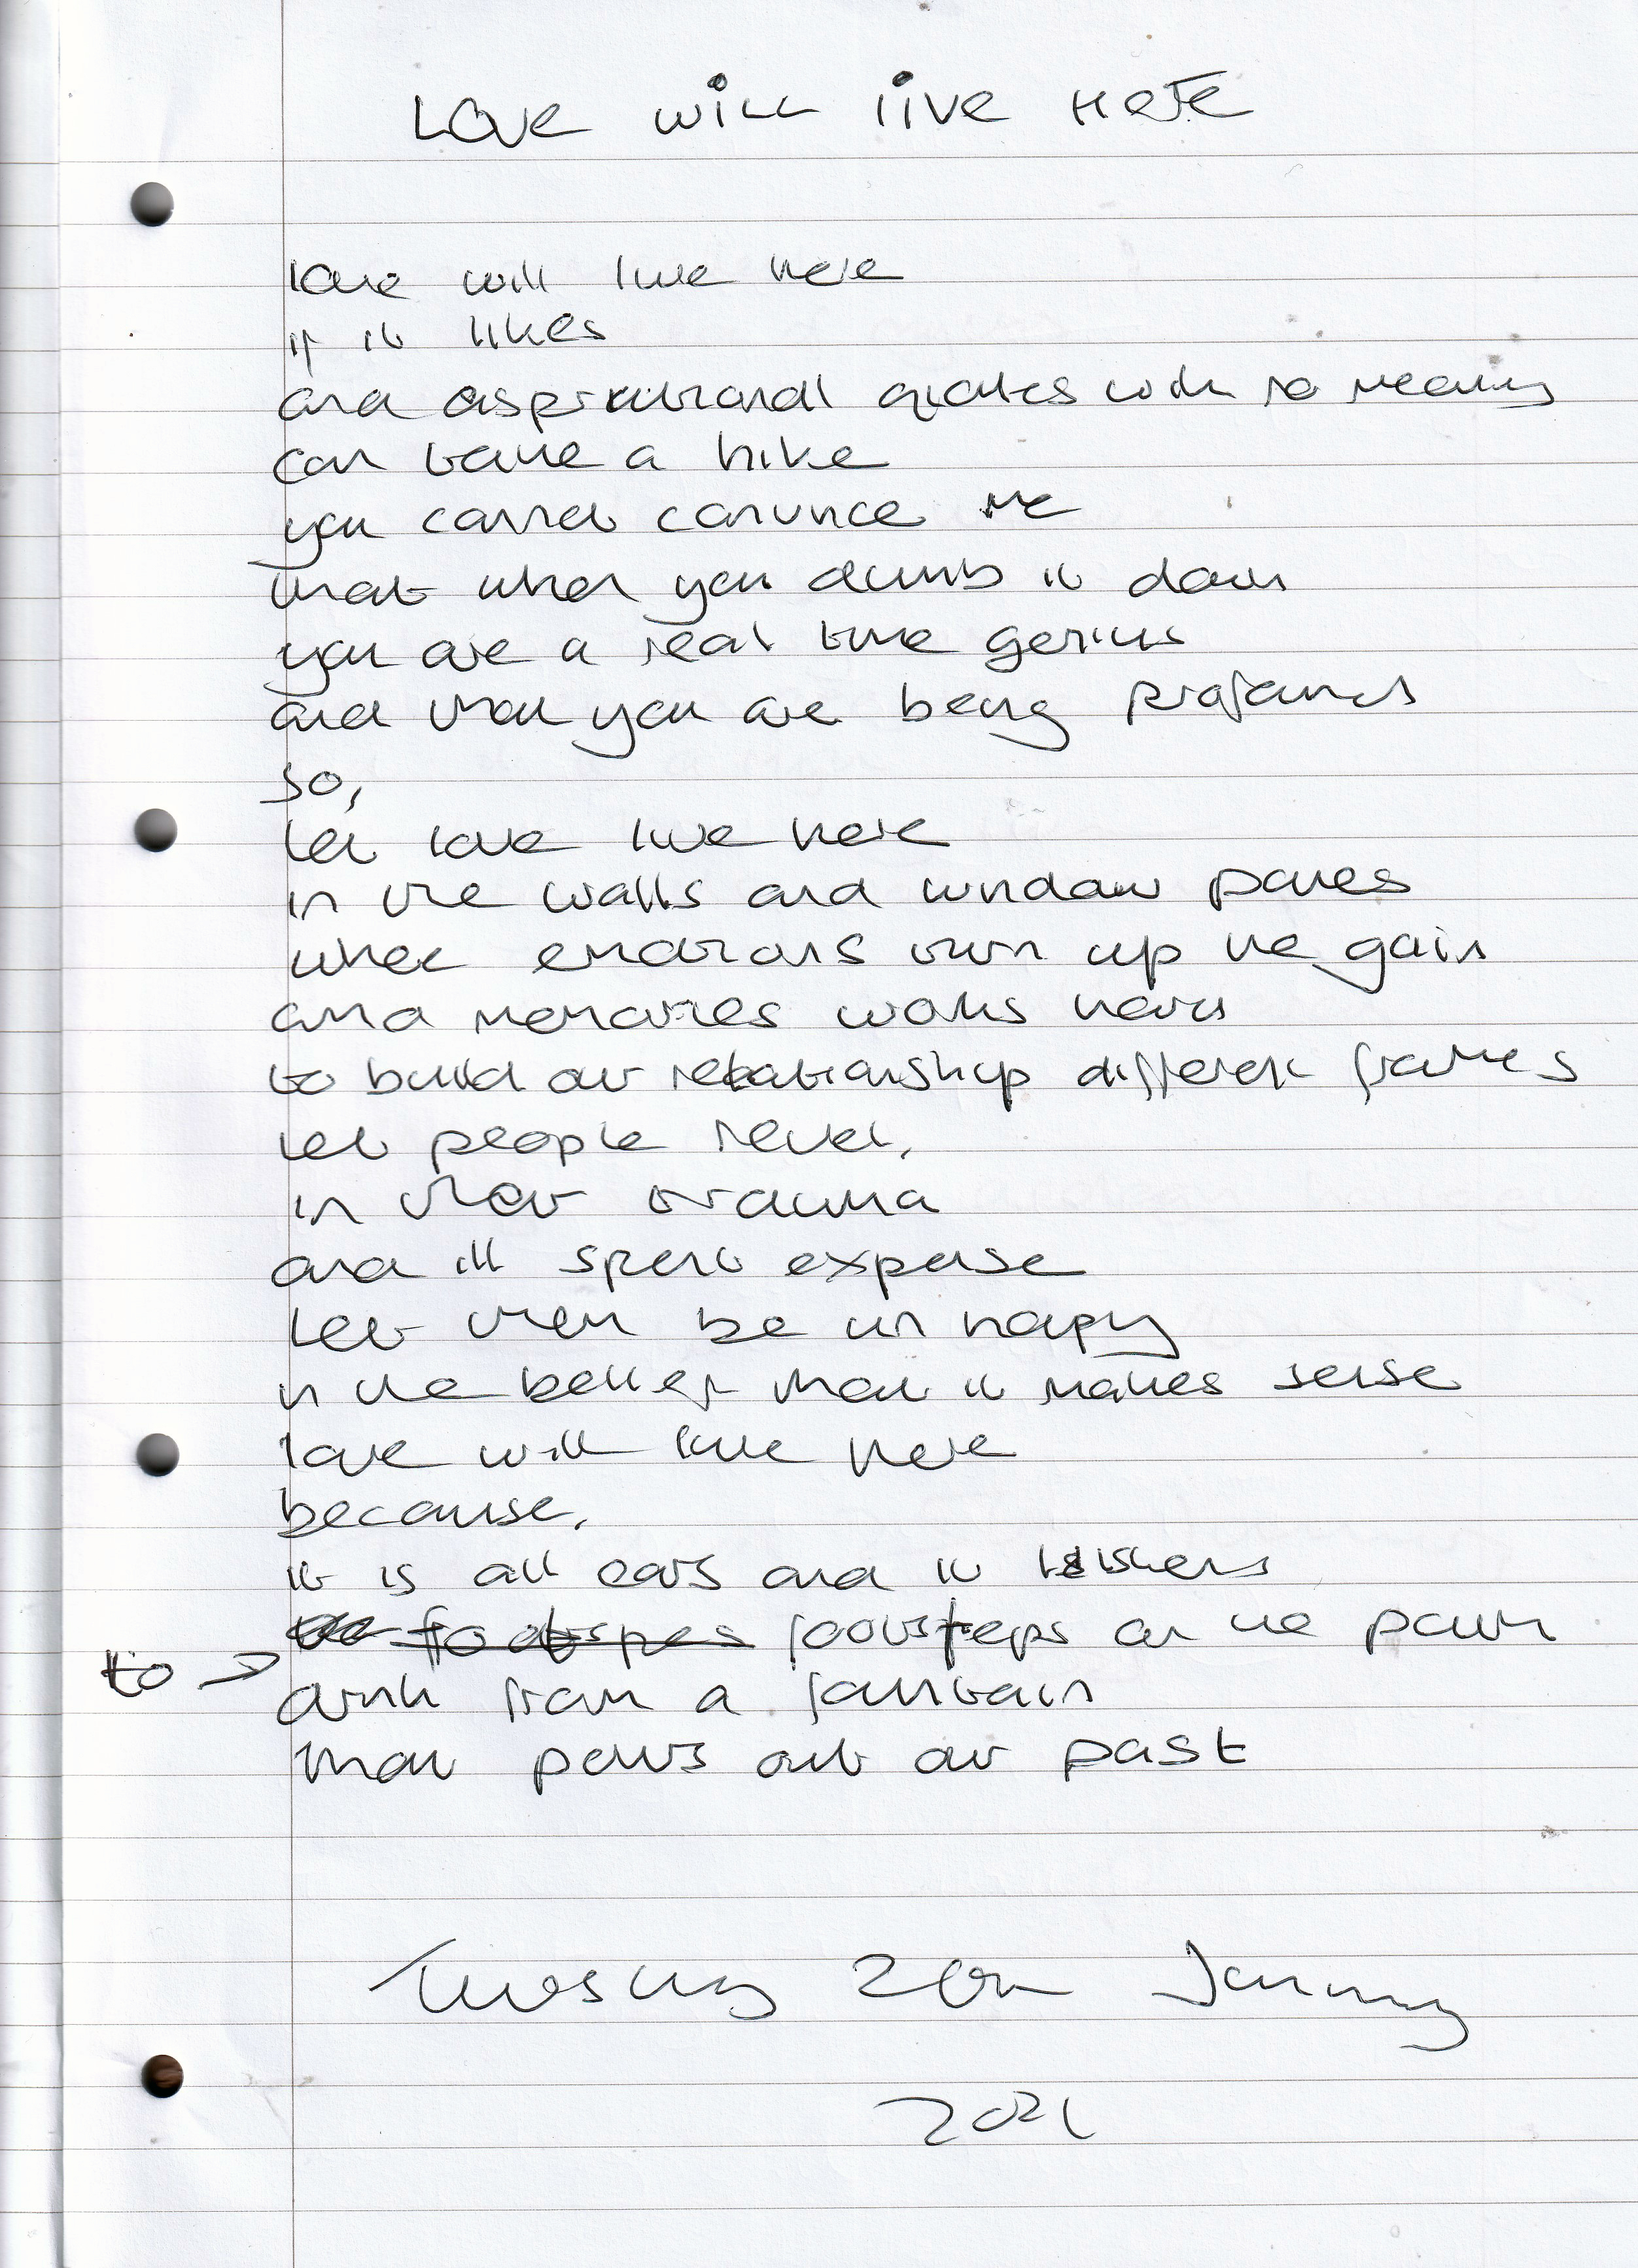 Love will live Here
love will live here
if it likes
and aspirational quotes with no meaning
can take a hike
you cannot convince me
that when you dumb it down
you are a real time genius
and that you are being profound
so,
let love live here
in the walls and window panes
where emotions turn up the gain
and memories works hard
to build our relationship different frames
let people revel,
in their trauma
and ill spent expense
let them be un happy
in the belief that it makes sense
love will live here
because,
it is all ears and it listens
to footsteps on the path
drink from a fountain
that pours out our past
Tuesday January
2021